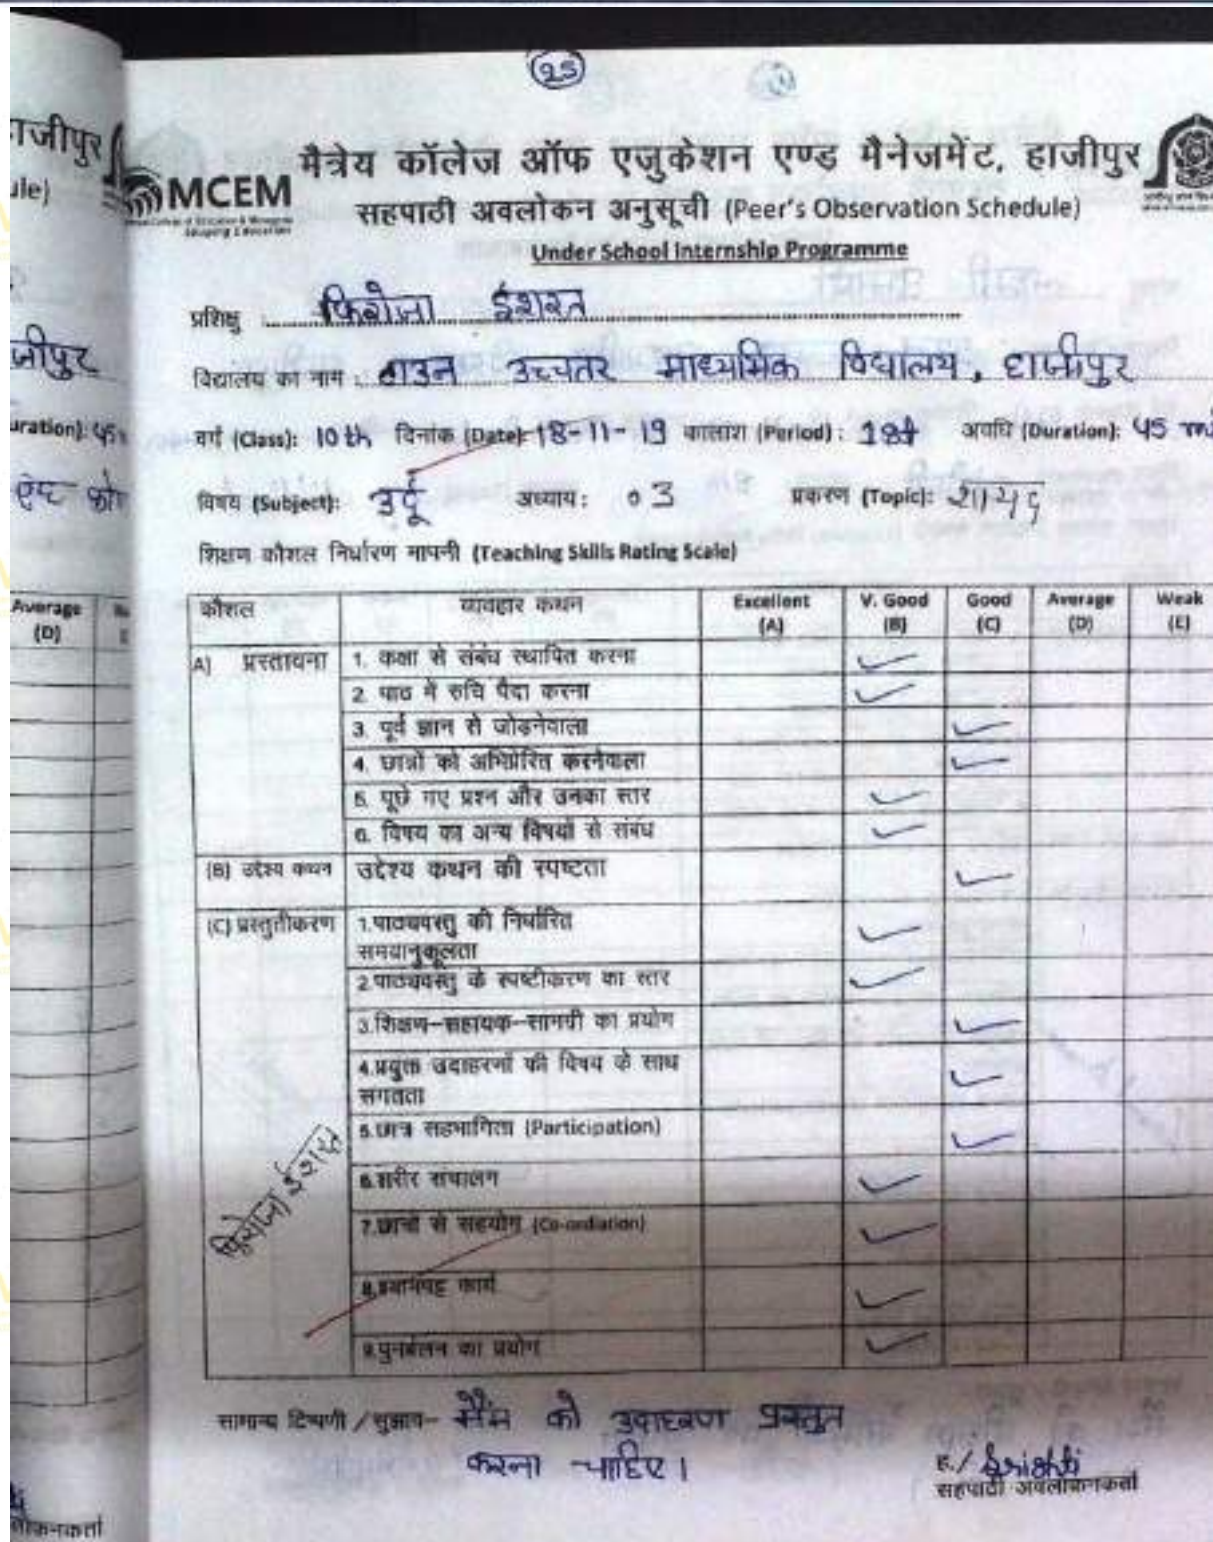 25
ाजीपुर
ule)
जीपुर
uration): 45
Average
(D)
MCEM
मैत्रेय कॉलेज ऑफ एजुकेशन एण्ड मैनेजमेंट, हाजीपुर
सहपाठी अवलोकन अनुसूची (Peer's Observation Schedule)
Under School Internship Programme
प्रशिक्षु फिरोजा ईशरत
विद्यालय का नाम : टाउन उच्चतर माध्यमिक विद्यालय, हाजीपुर
वर्ग (Class): 10th दिनांक (Date): 18-11-19 कालांश (Period): 1st अवधि (Duration): 45
विषय (Subject): उर्दू अध्याय: 03 प्रकरण (Topic): शायद
शिक्षण कौशल निर्धारण मापनी (Teaching Skills Rating Scale)
कौशल व्यवहार कथन Excellent (A) V. Good (B) Good (C) Average (D) Weak (E)
A) प्रस्तावना 1. कक्षा से संबंध स्थापित करना ✓
2. पाठ में रुचि पैदा करना ✓
3. पूर्व ज्ञान से जोड़नेवाला ✓
4. छात्रों को अभिप्रेरित करनेवाला ✓
5. पूछे गए प्रश्न और उनका स्तर ✓
6. विषय का अन्य विषयों से संबंध ✓
(B) उद्देश्य कथन उद्देश्य कथन की स्पष्टता ✓
(C) प्रस्तुतीकरण 1.पाठ्यवस्तु की निर्धारित
समयानुकूलता ✓
2.पाठ्यवस्तु के स्पष्टीकरण का स्तर ✓
3.शिक्षण-सहायक-सामग्री का प्रयोग ✓
4.प्रयुक्त उदाहरणों की विषय के साथ
संगतता ✓
5.छात्र सहभागिता (Participation) ✓
6.शरीर संचालन ✓
7.छात्रों से सहयोग (Co-ordiation) ✓
8.श्यामपट्ट कार्य ✓
9.पुनर्बलन का प्रयोग ✓
फिरोजा ईशरत
सामान्य टिप्पणी / सुझाव- मैम को उदाहरण प्रस्तुत
करना चाहिए।
ह./ Srishti
सहपाठी अवलोकनकर्ता